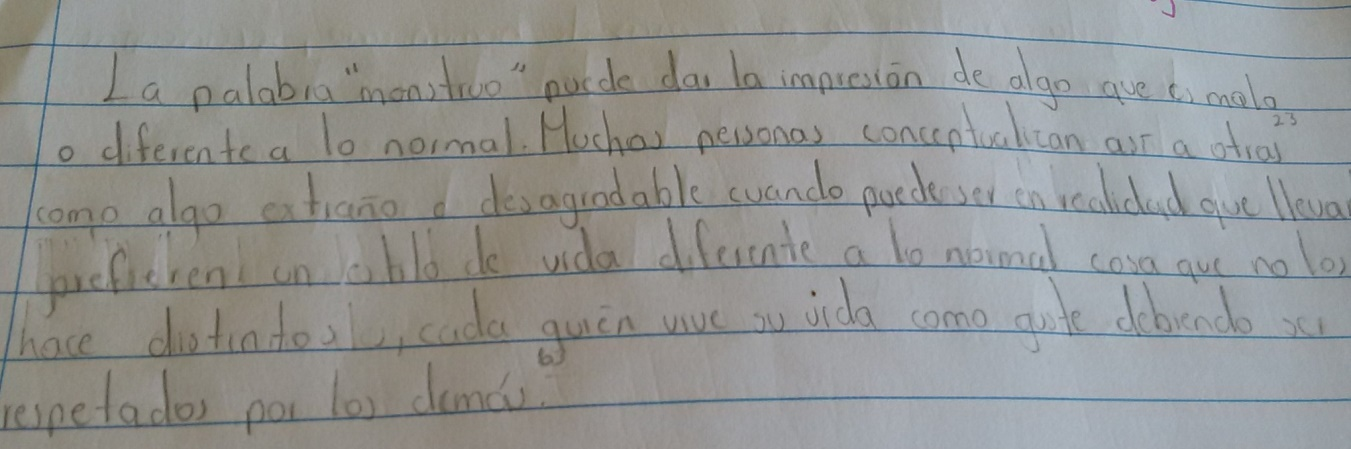 La palabra "monstruo" puede dar la impresión de algo que es malo
23
o diferente a lo normal. Muchas personas conceptualizan así a otras
como algo extraño o desagradable cuando puede ser en realidad que lleva
prefieren un estilo de vida diferente a lo normal cosa que no los
hace distintos, cada quién vive su vida como guste debiendo ser
respetados por los demás.